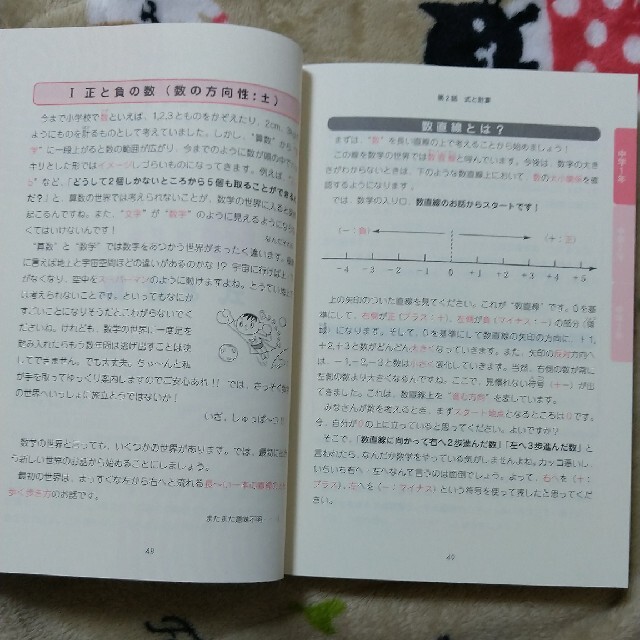 I 正と負の数(数の方向性:±)
今まで小学校で数といえば、1,2,3とものをかぞえたり、2cm、3
ようにものを計るものとして考えていました。しかし、“算数”から
字”に一段上がると数の範囲が広がり、今までのように数が頭の中で
キリとした形ではイメージしづらいものになってきます。例えば、
など、「どうして2個しかないところから5個も取ることができる
だ?」と、算数の世界では考えられないことが、数学の世界に入ると
起こるんですね。また、“文字”が“数字”のように見えるようになら
くてはいけないんです!
“算数”と“数学”では数字をあつかう世界がまったく違います。
に言えば地上と宇宙空間ほどの違いがあるのかな!?宇宙に行けば
がなくなり、空中をスーパーマンのように動けますよね。とうてい地上で
は考えられないことです。といってもなにか
すごいことになりそうだとこわがらないでく
ださいね。けれども、数学の世界に一歩足を
踏み入れたらもう数字君は逃げ出すことは決
してできません。でも大丈夫。ちゃ〜んと私
が手を取ってゆっくり案内しますのでご安心あれ!!では、さっそく数学
の世界へいっしょに旅立とうではないか!
いざ、しゅっぱ〜つ!!
数学の世界と言っても、いくつかの世界があります。では、最初に
う新しい世界のお話から始めることにしましょう。
最初の世界は、まっすぐな左から右へと流れる長〜い一本の直線の上を
歩く歩き方のお話です。
またまた意味不明
48
第2話 式と計算
数直線とは?
まずは、“数”を長い直線の上で考えることから始めましょう!
この線を数学の世界では数直線と呼んでいます。今後は、数字の大き
さがわからないときは、下のような数直線上において、数の大小関係を確
認するようになります。
では、数学の入り口、数直線のお話からスタートです!
(−:負)
(+:正)
−4 −3 −2 −1 0 +1 +2 +3 +4 +5
上の矢印のついた直線を見てください。これが“数直線”です。0を基
準にして、右側が正(プラス:+)、左側が負(マイナス:−)の部分(領
域)になります。そして、0を基準にして数直線の矢印の方向に、+1,
+2,+3と数がどんどん大きくなっていきます。また、矢印の反対方向へ
は、−1,−2,−3と数は小さく変化していきます。当然、右側の数が常に
左側の数より大きくなるんですね。ここで、見慣れない符号(+−)が出
てきました。これは、数直線上を“進む方向”を表しています。
みなさんが数を考えるとき、まずスタート地点となるところは0です。
今、自分が0の上に立っていると思ってください。よいですか?
そこで、「数直線に向かって右へ2歩進んだ数」「左へ3歩進んだ数」と
言われたら、なんだか数学をやっている気がしませんよね。カッコ悪いし、
いちいち右へ・左へなんて言うのは面倒でしょう。よって、右へを(+:
プラス)、左へを(−:マイナス)という符号を使って表したと思ってくだ
さい。
49
中学1年